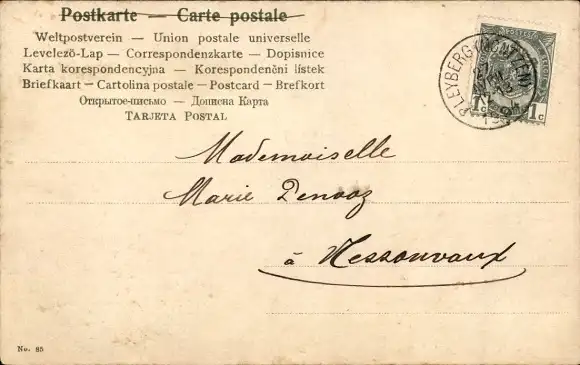 Postkarte — Carte postale
Weltpostverein — Union postale universelle
Levelező-Lap — Correspondenzkarte — Dopisnice
Karta korespondencyjna — Korespondenční lístek
Briefkaart — Cartolina postale — Postcard — Brefkort
Открытое-письмо — Дописна Карта
TARJETA POSTAL
PLEYBERG (MONTZEN)
1c 1c
Mademoiselle
Marie
à Nessonvaux
No. 85